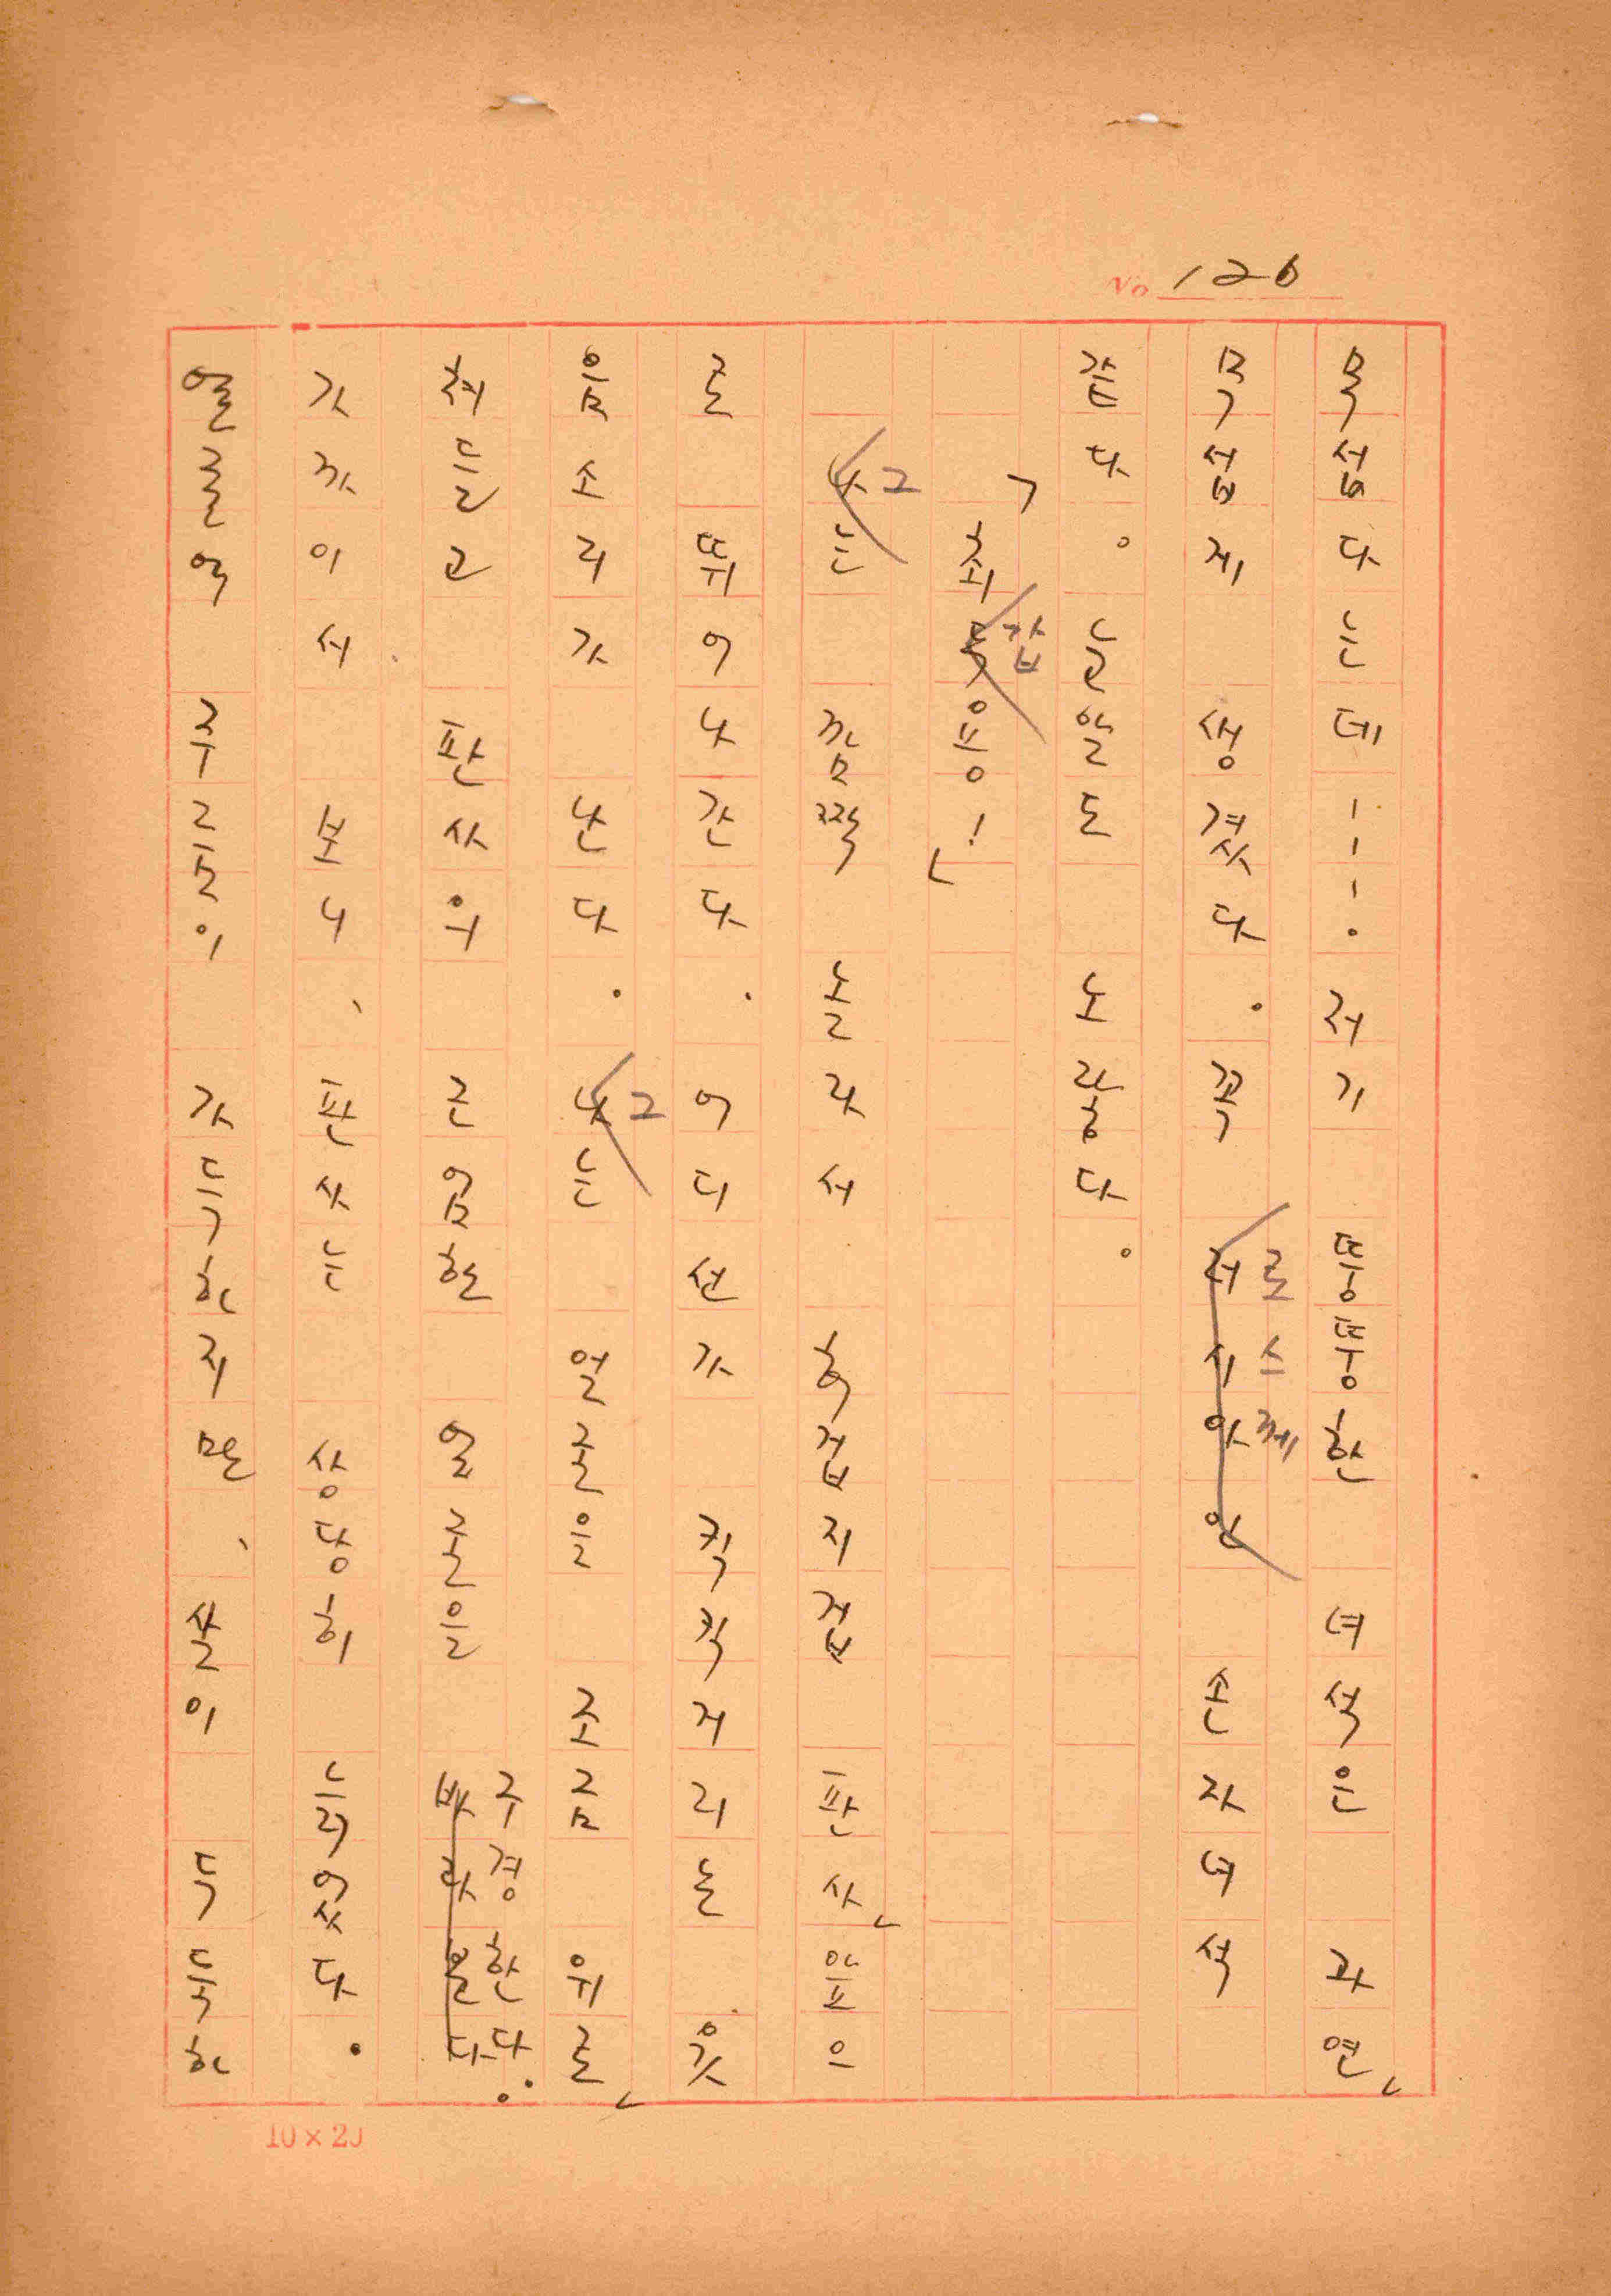 126
무섭다는데---. 저기 뚱뚱한 녀석은 과연
무섭게 생겼다. 꼭 로스께 손자녀석
같다. 눈알도 노랗다.
「최갑용!」
그는 깜짝 놀라서 허겁지겁 판사 앞으
로 뛰어나간다. 어디선가 킥킥거리는 웃
음소리가 난다. 그는 얼굴을 조금 위로
쳐들고 판사의 근엄한 얼굴을 구경한다.
가까이서 보니, 판사는 상당히 늙었다.
얼굴에 주름이 가득하지만, 살이 두둑하
10×20